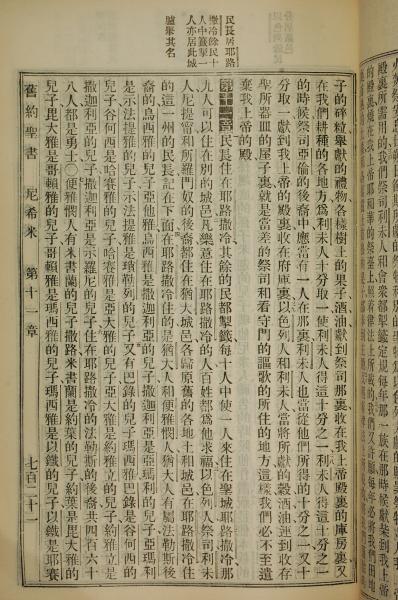 民長居耶路
撒冷餘民十
人中籤擧一
人亦居此城
臚舉其名
子的碎粒舉獻的禮物各樣樹上的果子酒油獻到祭司那裏收在我上帝殿裏的庫房裏又
在我們耕種的各地方爲利未人十分取一使利未人得這十分之一利未人得這十分之一
的時候祭司亞倫的後裔中應當有一人在那裏利未人也當從他們所得的十分之一又十
分取一獻到我上帝的殿裏收在府庫裏以色列人和利未人當將所獻的穀酒油運到收存
聖所器皿的屋子裏就是當差的祭司和看守門的謳歌的所住的地方這樣我們必不至遺
棄我上帝的殿
第十一章民長住在耶路撒冷其餘的民都掣籤每十人中使一人來住在聖城耶路撒冷那
九人可以住在別的城邑凡樂意住在耶路撒冷的人百姓都爲他求福以色列人祭司利未
人尼提甯和所羅門奴的後裔都住在猶大城邑各歸原舊的各地土和城邑在耶路撒冷住
的這一州的民長記在下面在耶路撒冷住的是猶大人和便雅憫人猶大人有屬法勒斯後
裔的烏西雅的兒子亞他雅烏西雅是撒迦利亞的兒子撒迦利亞是亞瑪利亞的兒子亞瑪利
是示法提雅的兒子示法提雅是瑪勒列的兒子又有巴錄的兒子瑪西雅巴錄是谷何西的
兒子谷何西是哈賽雅的兒子哈賽雅是亞大雅的兒子亞大雅是約雅立的兒子約雅立是
撒迦利亞的兒子撒迦利亞是示羅尼的兒子住在耶路撒冷的法勒斯的後裔共四百六十
八人都是勇士○便雅憫人有米書蘭的兒子撒路米書蘭是約葉的兒子約葉是毘大雅的
兒子毘大雅是哥賴雅的兒子哥賴雅是瑪西雅的兒子瑪西雅是以鐵的兒子以鐵是耶賽
舊約聖書 尼希米 第十一章 七百二十一